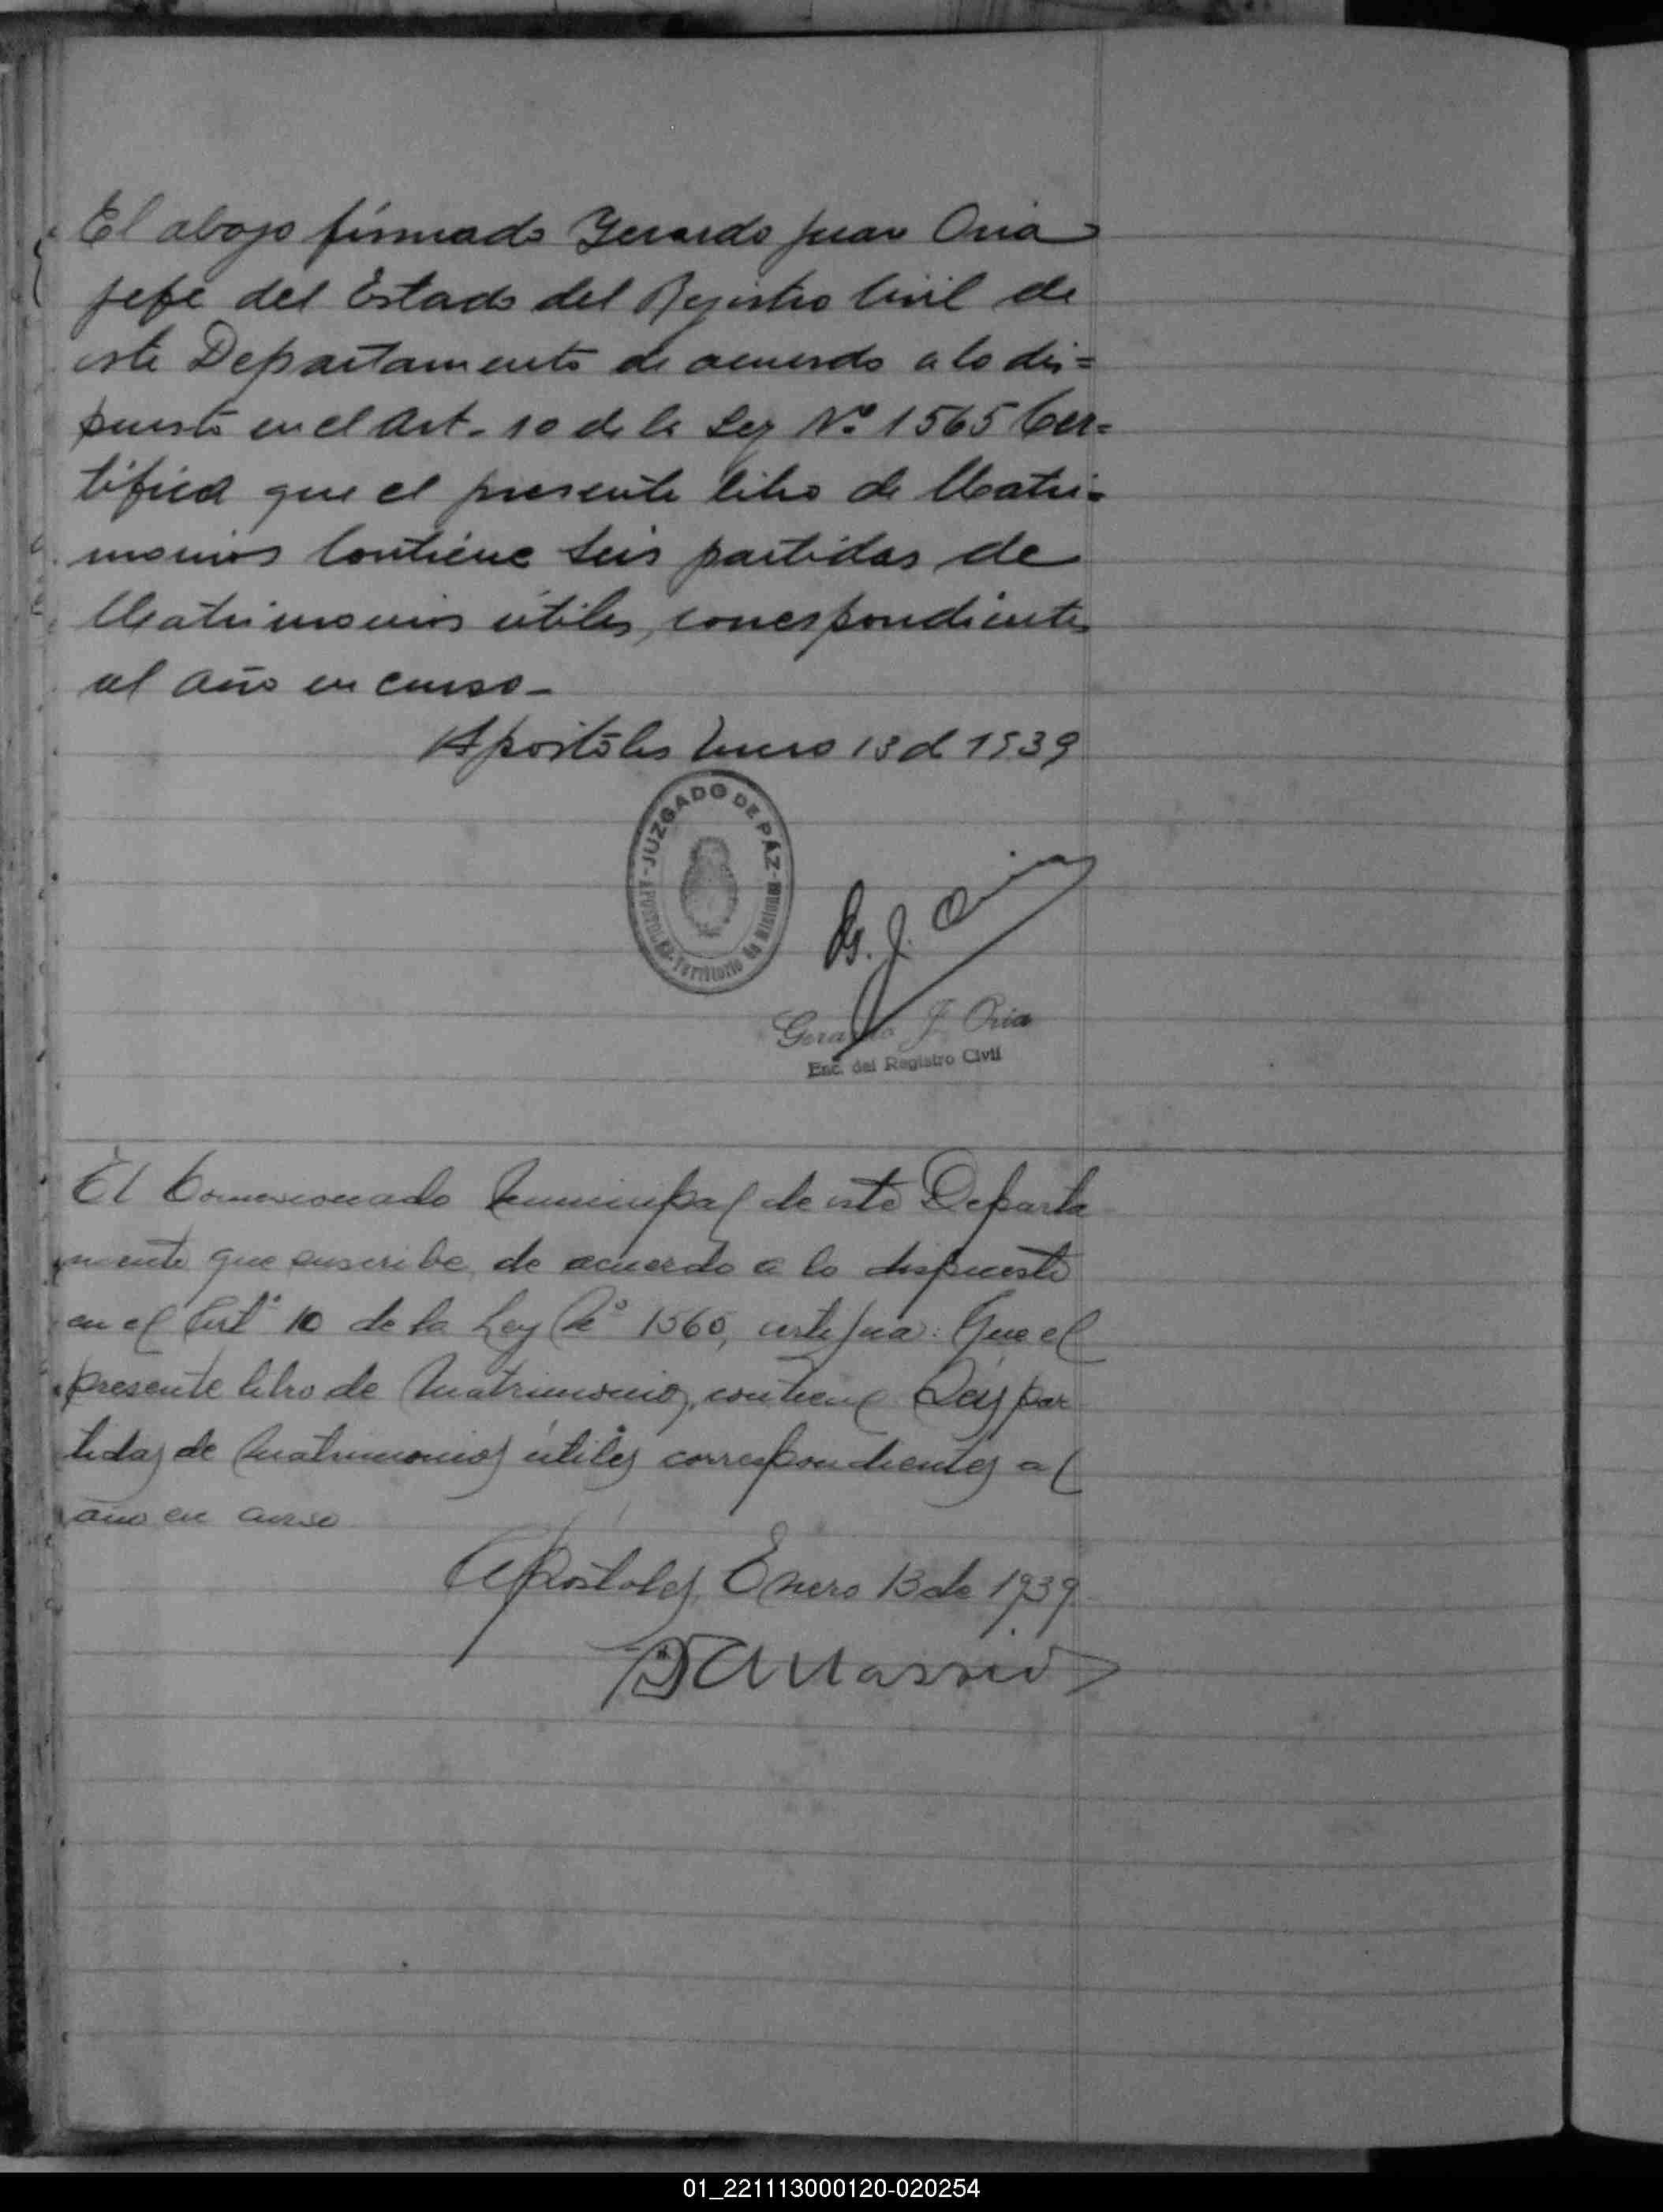 El abajo firmado Gerardo Juan Oria
jefe del Estado del Registro Civil de
este Departamento de acuerdo a lo dis=
puesto en el Art. 10 de la Ley Nº 1565 Cer=
tifica que el presente libro de Matri=
monios Contiene seis partidas de
Matrimonios útiles, correspondientes
al año en curso-
Apostóles Enero 13 d 1939
JUZGADO DE PAZ
APOSTOLES - Territorio de Misiones
G. J. Oria
Gerardo J. Oria
Enc. del Registro Civil
El Comisionado Municipal de este Departa
mento que suscribe, de acuerdo a lo dispuesto
en el Artº 10 de la Ley Nº 1565, certifica: Que el
presente libro de Matrimonios, contiene Seis par
tidas de Matrimonios útiles correspondientes al
año en curso
Apóstoles, Enero 13 de 1939
01_221113000120-020254